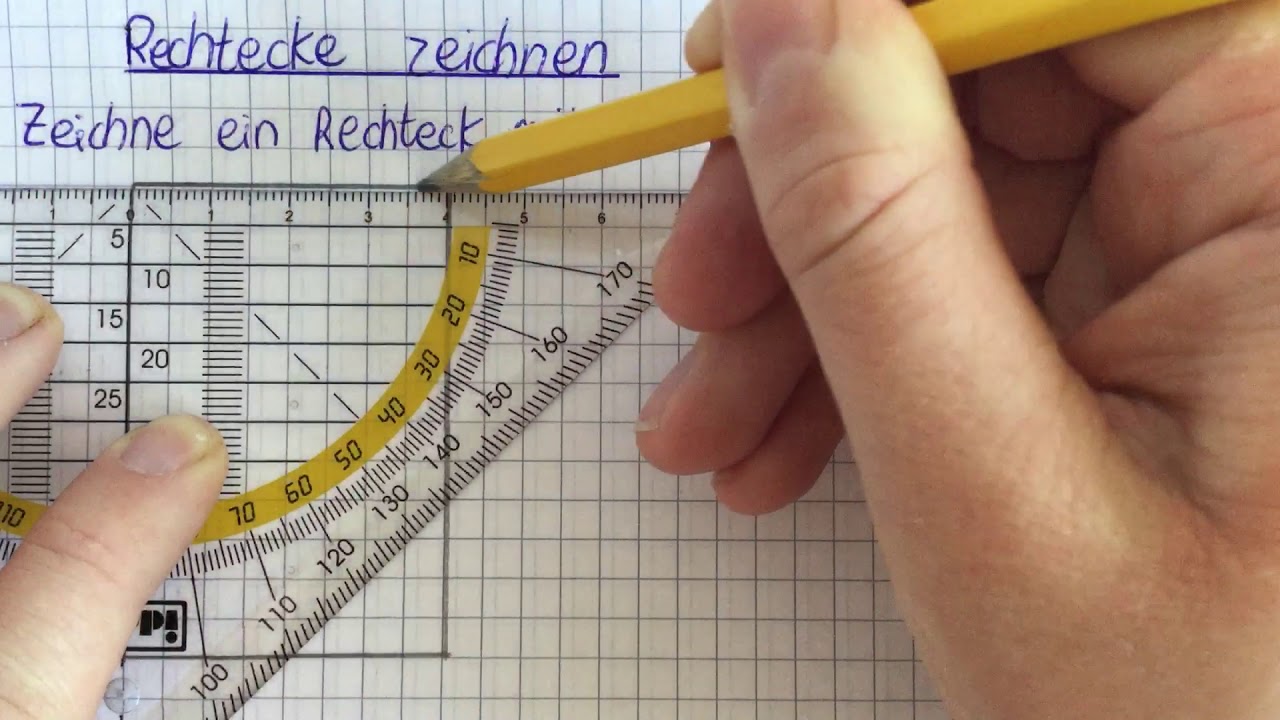 Rechtecke zeichnen
Zeichne ein Rechteck
1 0 1 2 3 4 5 6
5
10
15
20
25
10
20
30
40
50
60
70
110
170
160
150
140
130
120
110
100